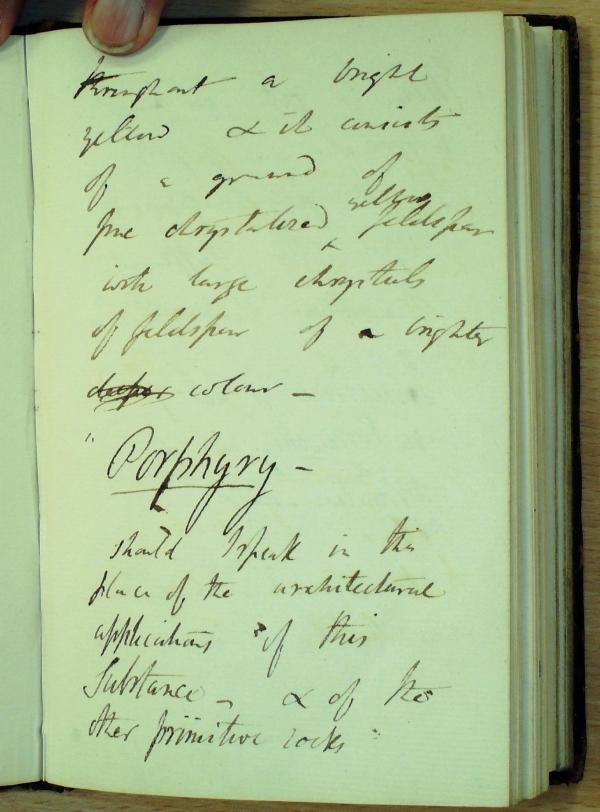 throughout a bright
yellow & it consists
of a ground of
fine chrystalized yellow feldspar
with large chrystals
of feldspar of a brighter
deeper colour –
" Porphyry –
should I speak in this
place of the architectural
applications of this
Substance – & of the
other primitive rocks "